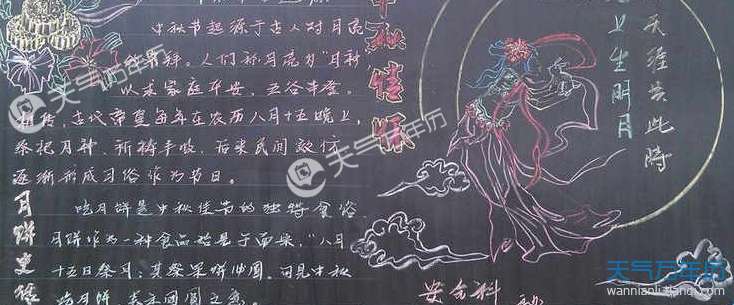 中秋节起源于古人对月亮
崇拜。人们称月亮为"月神"
以求家庭平安，五谷丰登。
相传，古代帝皇每年在农历八月十五晚上，
祭祀月神，祈祷丰收，后来民间效仿
逐渐形成习俗作为节日。
吃月饼是中秋佳节的独特食俗
月饼作为一种食品始是于
十五日祭月，其祭果饼 圆。可见中秋
吃月饼，表示团圆之意。
月饼史话
中秋情
天涯共此時
上生明月
安全科
天气万年历
天气万年历
天气万年历
天气万年历
wannianli.tianqi.com